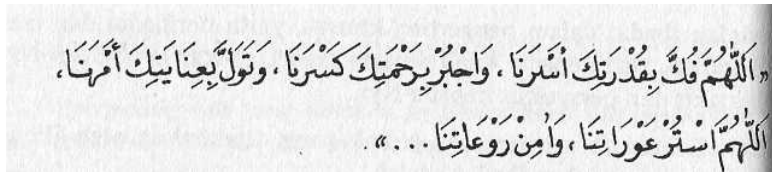 « اَللّٰهُمَّ فُكَّ بِقُدْرَتِكَ أَسْرَنَا ، وَاجْبُرْ بِرَحْمَتِكَ كَسْرَنَا ، وَتَوَلَّ بِعِنَايَتِكَ أَمْرَنَا ،
اَللّٰهُمَّ اسْتُرْ عَوْرَاتِنَا ، وَاٰمِنْ رَوْعَاتِنَا . . . » .